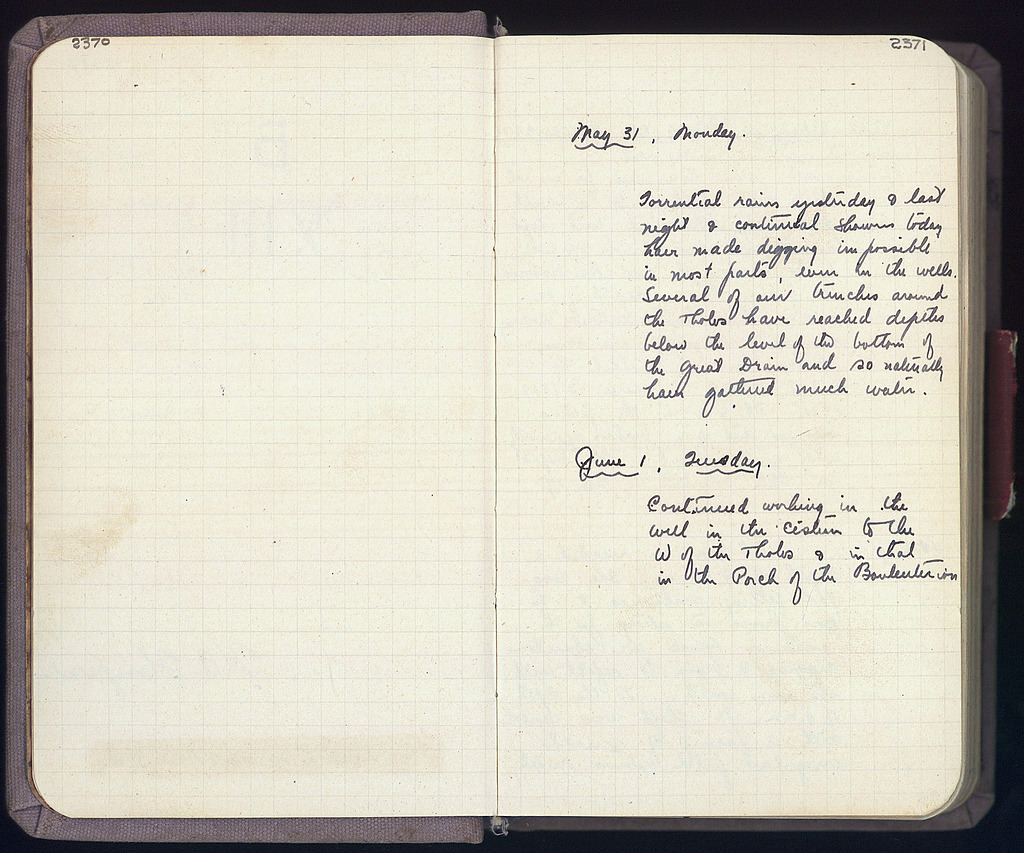 2370
2371
May 31, Monday.
Torrential rains yesterday & last
night & continual showers today
have made digging impossible
in most parts, even in the wells.
Several of our trenches around
the Tholos have reached depths
below the level of the bottom of
the Great Drain and so naturally
have gathered much water.
June 1, Tuesday.
Continued working in the
well in the cistern to the
W of the Tholos & in that
in the Porch of the Bouleuterion